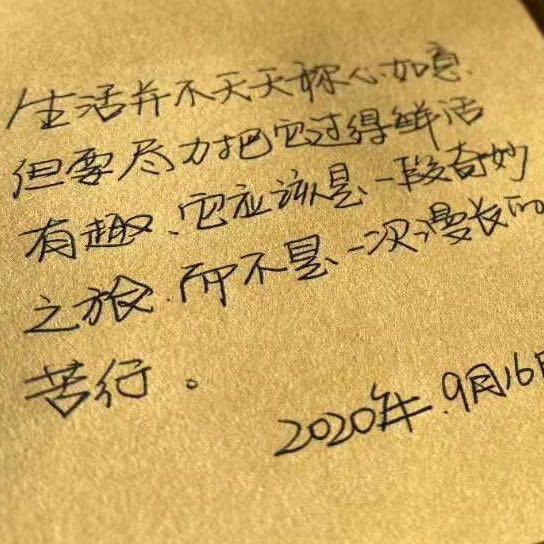 生活并不天天称心如意.
但要尽力把它过得鲜活
有趣、它应该是一段奇妙
之旅.而不是一次漫长的
苦行。
2020年.9月16日